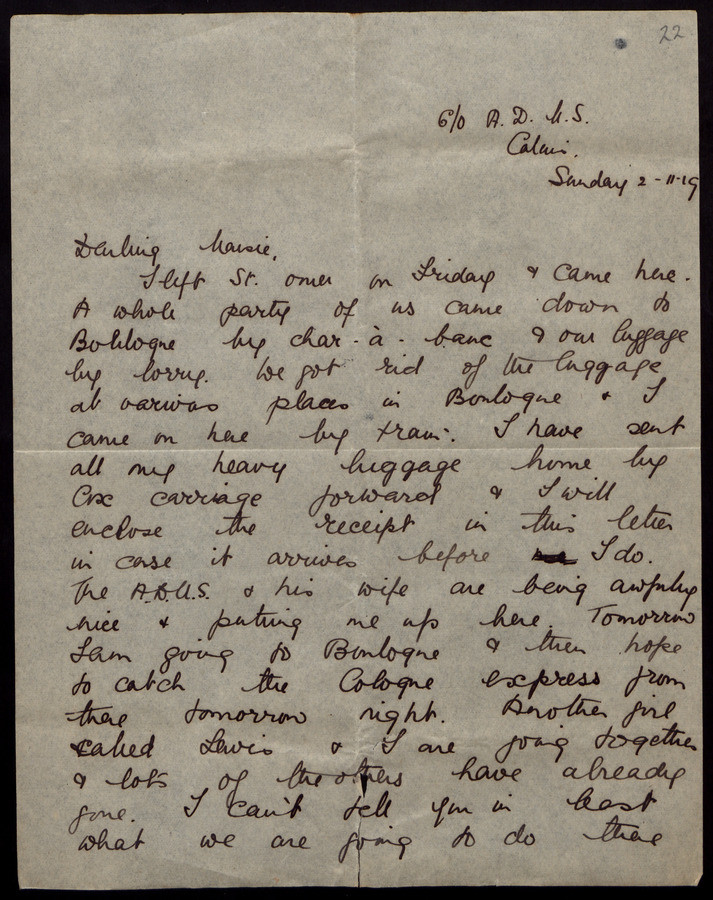 22
c/o A. D. M. S.
Calais.
Sunday 2-11-19
Darling Maisie,
I left St. Omer on Friday & came here.
A whole party of us came down to
Boulogne by char-à-banc & our luggage
by lorry. We got rid of the luggage
at various places in Boulogne & I
came on here by train. I have sent
all my heavy luggage home by
Cox carriage forward & I will
enclose the receipt in this letter
in case it arrives before I do.
The A.D.M.S. & his wife are being awfully
nice & putting me up here. Tomorrow
I am going to Boulogne & then hope
to catch the Cologne express from
there tomorrow night. Another girl
called Lewis & I are going together
& lots of the others have already
gone. I can't tell you in least
what we are going to do there